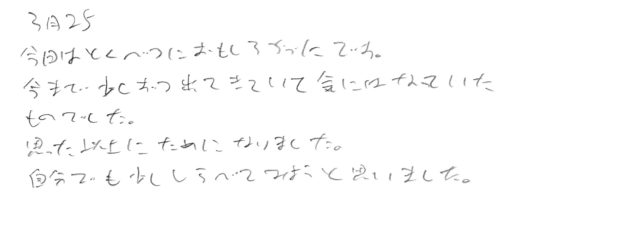 3月25
今回はとくべつにおもしろかったです。
今まで少しずつ出てきていて気にはなっていた
ものでした。
思った以上にためになりました。
自分でも少ししらべてみようと思いました。